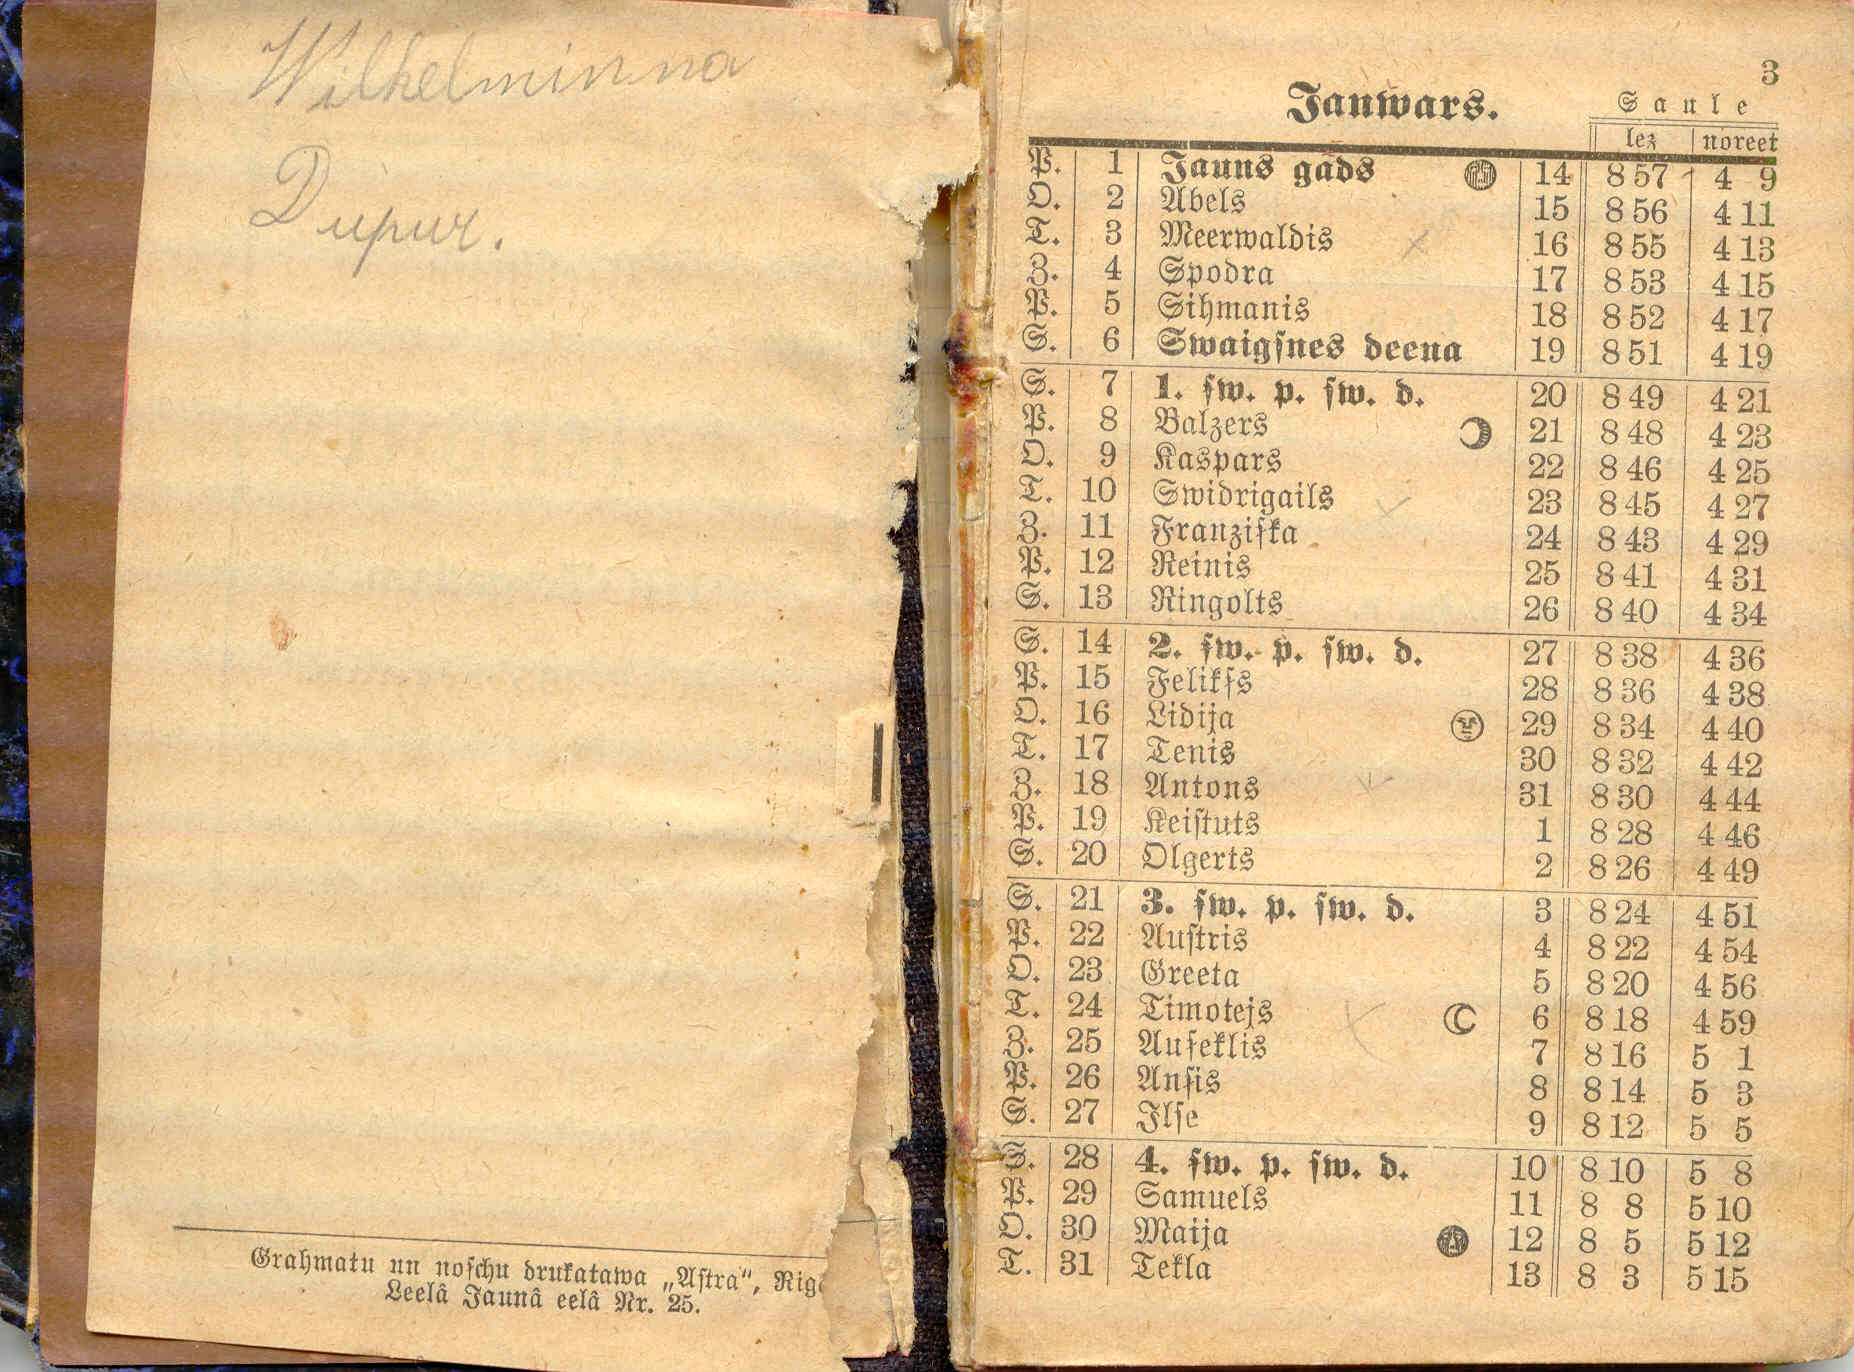 Wilhelminna
Dupur.
Grahmatu un noſchu drukatawa „Aſtra“, Rig
Leelâ Jaunâ eelâ Nr. 25.
3
Janwars.
Saule
lez noreet
P. 1 Jauns gads 14 8 57 4 9
O. 2 Abels 15 8 56 4 11
T. 3 Meerwaldis 16 8 55 4 13
Z. 4 Spodra 17 8 53 4 15
P. 5 Sihmanis 18 8 52 4 17
S. 6 Swaigſnes deena 19 8 51 4 19
S. 7 1. ſw. p. ſw. d. 20 8 49 4 21
P. 8 Balzers 21 8 48 4 23
O. 9 Kaspars 22 8 46 4 25
T. 10 Swidrigails 23 8 45 4 27
Z. 11 Franziſka 24 8 43 4 29
P. 12 Reinis 25 8 41 4 31
S. 13 Ringolts 26 8 40 4 34
S. 14 2. ſw. p. ſw. d. 27 8 38 4 36
P. 15 Felikſs 28 8 36 4 38
O. 16 Lidija 29 8 34 4 40
T. 17 Tenis 30 8 32 4 42
Z. 18 Antons 31 8 30 4 44
P. 19 Keiſtuts 1 8 28 4 46
S. 20 Olgerts 2 8 26 4 49
S. 21 3. ſw. p. ſw. d. 3 8 24 4 51
P. 22 Auſtris 4 8 22 4 54
O. 23 Greeta 5 8 20 4 56
T. 24 Timotejs 6 8 18 4 59
Z. 25 Auſeklis 7 8 16 5 1
P. 26 Anſis 8 8 14 5 3
S. 27 Ilſe 9 8 12 5 5
S. 28 4. ſw. p. ſw. d. 10 8 10 5 8
P. 29 Samuels 11 8 8 5 10
O. 30 Maija 12 8 5 5 12
T. 31 Tekla 13 8 3 5 15